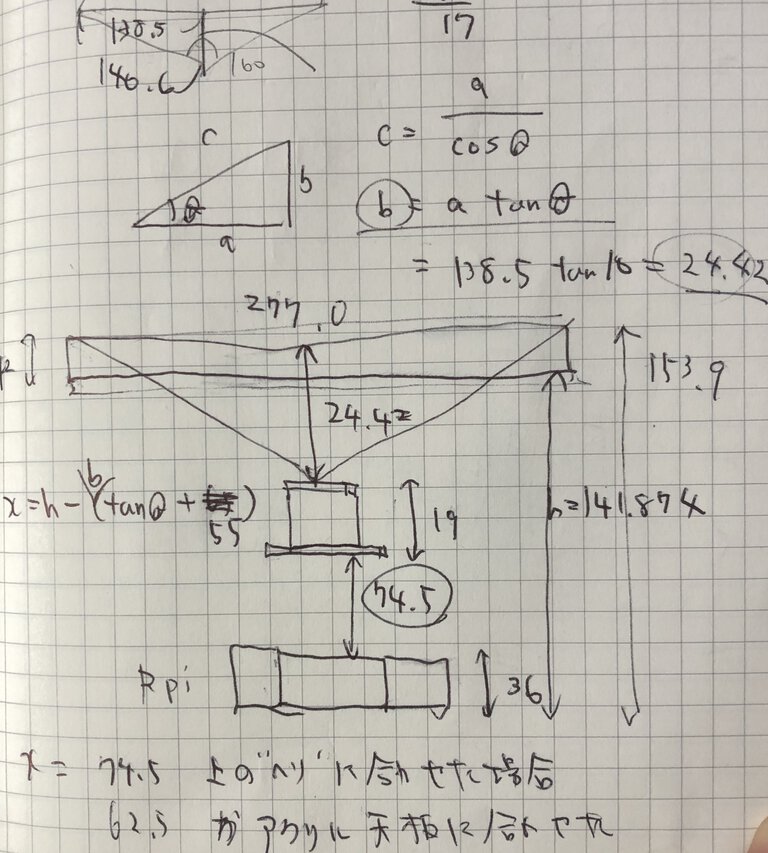 138.5
17
146.6
160
c
b
θ
a
c = a / cos θ
b = a tan θ
= 138.5 tan 10 = 24.42
277.0
153.9
24.42
x = h - b(tanθ + 55)
19
h=141.874
74.5
Rpi
36
x = 74.5 上の"ヘリ"に合わせた場合
62.5 がアクリル天板に合わせた